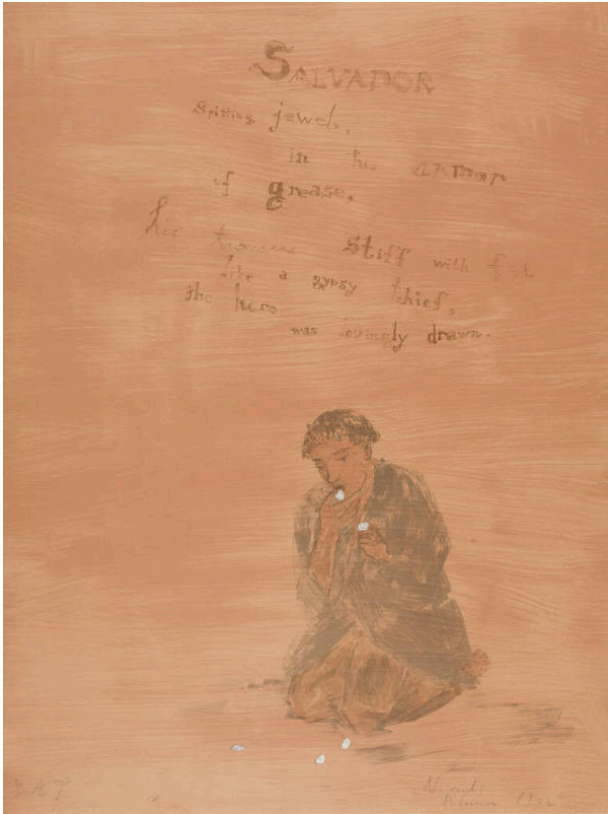 SALVADOR
Spitting jewels,
in his armor
of grease,
his trousers stiff with fat
like a gypsy thief,
the hero
was lovingly drawn.